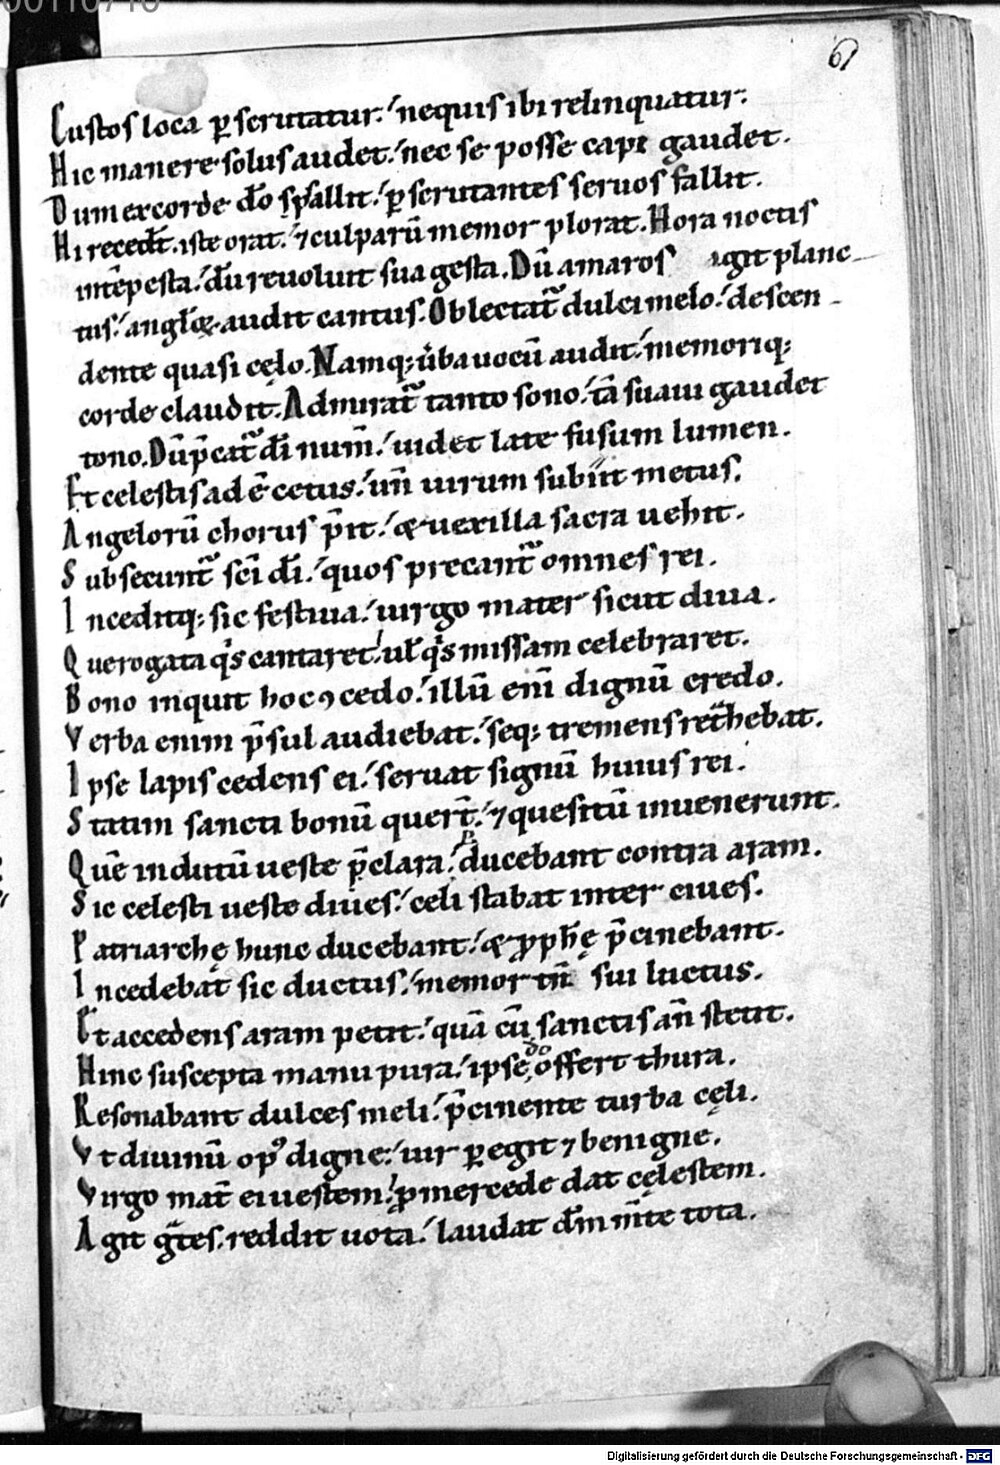 00110710
61
Custos loca ꝑscrutatur.' nequis ibi relinquatur.
Hic manere solus audet.' nec se posse capi gaudet.
Dum ex corde dō sp̄allit.' ꝑscrutantes seruos fallit.
Hi recedt̄. iste orat.' ⁊ culparū memor plorat. Hora noctis
intēpesta.' dū reuoluit sua gesta. Dū amaros agit planc
tus.' angl̄oꝝ audit cantus. Oblectat᷑ dulci melo.' descen-
dente quasi cęlo. Namq; ūba uocū audit.' memoriq;
corde claudit. Admirat᷑ tanto sono.' tā suaui gaudet
tono. Dū p̄cat᷑ dī num̄.' uidet late fusum lumen.
Et celestis adē cetus.' un̄ uirum subiit metus.
Angelorū chorus p̄it.' & uexilla sacra uehit.
Subsecunt᷑ sc̄i dī.' quos precant᷑ omnes rei.
Inceditq; sic festiua.' uirgo mater sicut diua.
Que rogata qͥs cantaret.' ul̄ qͥs missam celebraret.
Bono inquit hoc ꝯcedo.' illū enī dignū credo.
Verba enim p̄sul audiebat.' seq; tremens ret̄hebat.
Ipse lapis cedens ei.' seruat signū huius rei.
Statim sancti bonū quert̄.' ⁊ quesitū inuenerunt.
Quē indutū ueste p̄clara.' ducebant contra aram.
Sic celesti ueste diues.' celi stabat inter ciues.
Patriarchę hunc ducebant.' & ꝓph̄ę p̄cinebant.
Incedebat sic ductus.' memor tn̄ sui luctus.
Et accedens aram petit.' quā cū sanctis an̄ stetit.
Hinc suscepta manu pura.' ipse dō offert thura.
Resonabant dulces meli.' p̄cinente turba cęli.
Vt diuinū opꝰ digne.' uir ꝑegit ⁊ benigne.
Virgo mat̄ ei uestem.' ꝓ mercede dat cęlestem.
Agit gͣtes. reddit uota.' laudat dn̄m m̄te tota.
Digitalisierung gefördert durch die Deutsche Forschungsgemeinschaft - DFG